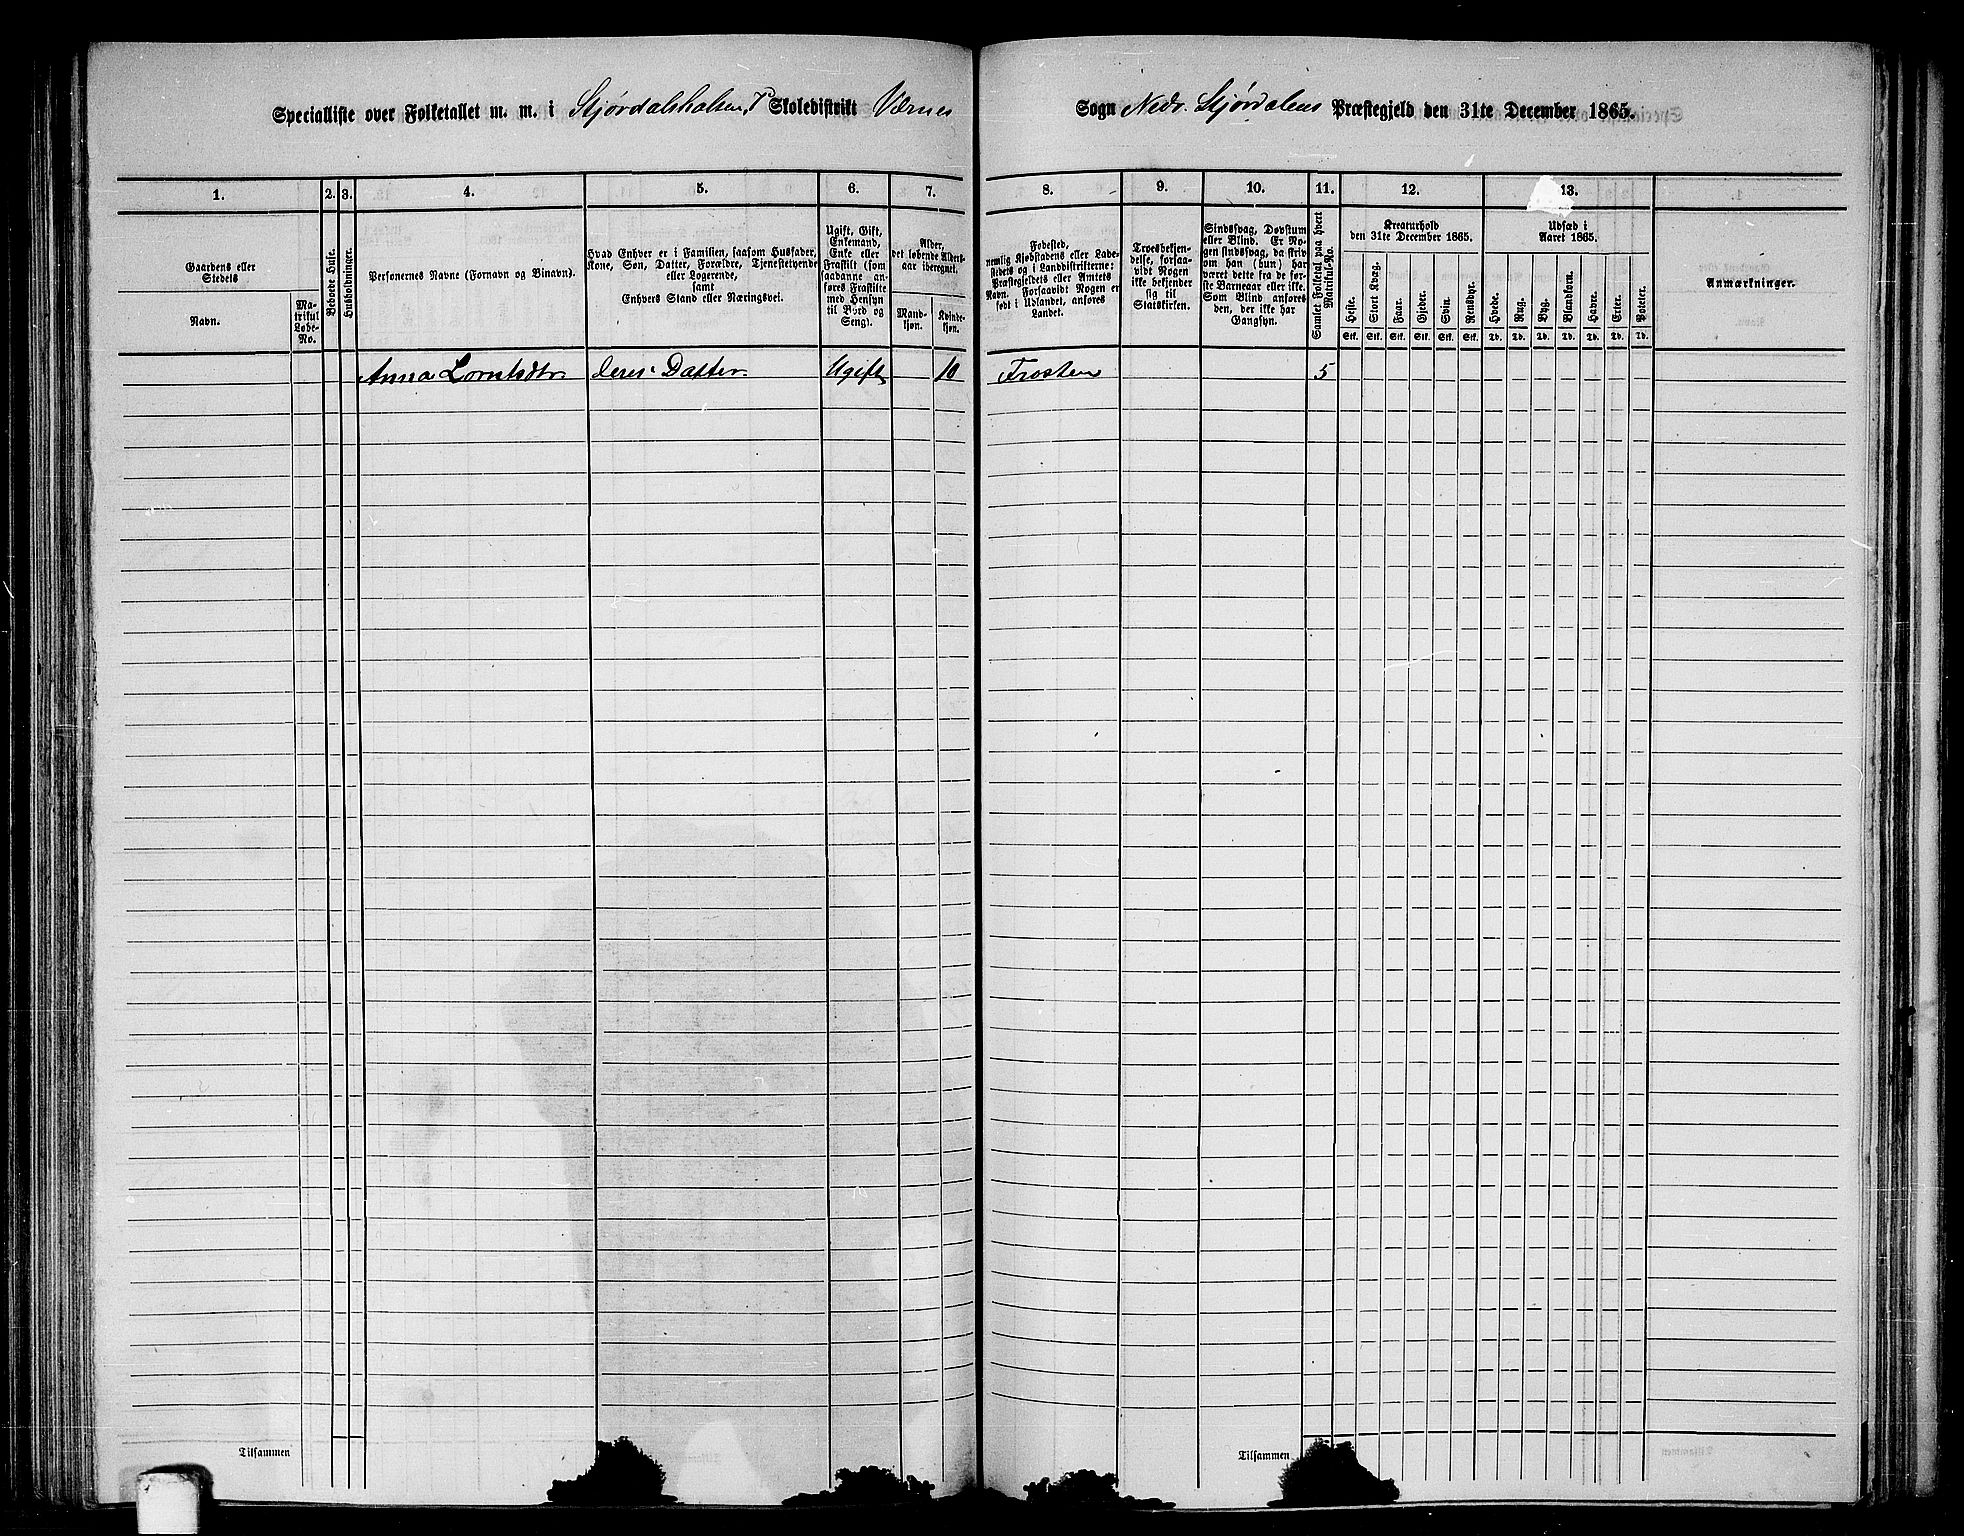 Specialliste over Folketallet m. m. i Stjørdalshalsens Skoledistrikt Værnes Sogn Nedr. Stjørdalens Præstegjeld den 31te December 1865.
1. 2. 3. 4. 5. 6. 7. 8. 9. 10. 11. 12. 13.
Gaardens eller Stedets
Navn.
Matrikul Løbe-No.
Beboede Huse.
Husholdninger.
Personernes Navne (Fornavn og Binavn).
Hvad Enhver er i Familien, saasom Husfader,
Kone, Søn, Datter, Forældre, Tjenestetyende
eller Logerende,
samt
Enhvers Stand eller Næringsvei.
Ugift, Gift,
Enkemand,
Enke eller
Fraskilt (som
saadanne an-
føres Fraskilte
med Hensyn
til Bord og
Seng).
Alder,
det løbende Alders-
aar iberegnet.
Mand-
kjøn.
Kvinde-
kjøn.
Fødested,
nemlig Kjøbstadens eller Lade-
stedets og i Landdistrikterne:
Præstegjeldets eller Annexets
Navn. Forsaavidt Nogen er
født i Udlandet, anføres
Landet.
Troesbekjen-
delse, forsaa-
vidt Nogen
ikke bekjender
sig til
Statskirken.
Sindssvag, Døvstum
eller Blind. Er No-
gen sindssvag, da skriv
om han (hun) har
været dette fra de før-
ste Barneaar eller ikke.
Som Blind anføres
den, der ikke har
Gangsyn.
Samlet Folketal paa hvert
Matrikul-No.
Kreaturhold
den 31te December 1865.
Heste.
Stort Kvæg.
Faar.
Gjeder.
Svin.
Rensdyr.
Stk. Stk. Stk. Stk. Stk. Stk.
Udsæd i
Aaret 1865.
Hvede.
Rug.
Byg.
Blandkorn.
Havre.
Erter.
Poteter.
Td. Td. Td. Td. Td. Td. Td.
Anmærkninger.
Anna Lorntsdtr. deres Datter Ugift 10 Frosten 5
Tilsammen
Tilsammen